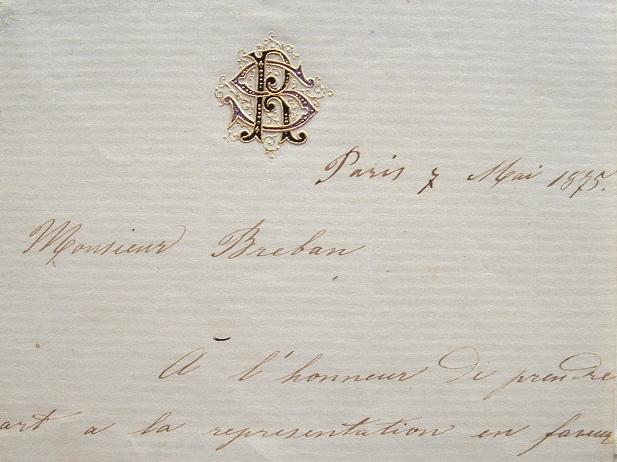 Paris 7 Mai 1875.
Monsieur Breban
A l'honneur de prendre
art a la representation en faveur